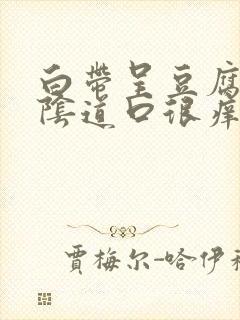 白带呈豆腐
陰道口很痒
賈梅尔-哈伊科